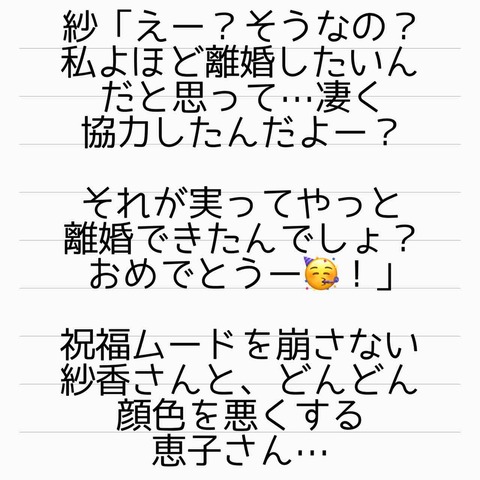 紗「えー？そうなの？
私よほど離婚したいん
だと思って…凄く
協力したんだよー？
それが実ってやっと
離婚できたんでしょ？
おめでとうー🥳！」
祝福ムードを崩さない
紗香さんと、どんどん
顔色を悪くする
恵子さん…